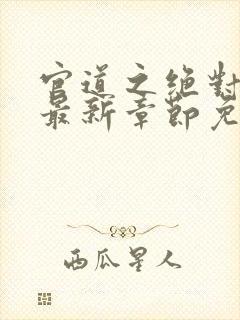 官道之绝对
最新章节免
西瓜星人